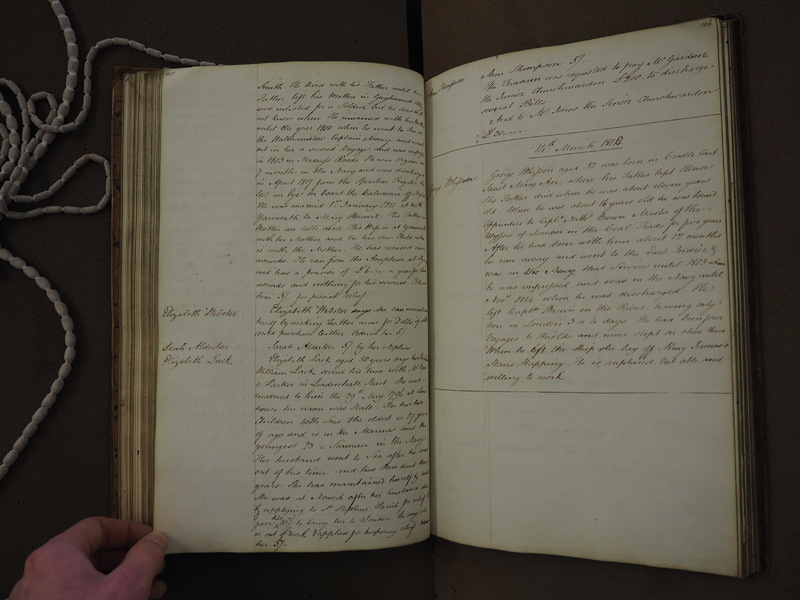 Smith He lived with his Father until his
Father left his Mother in
and inlisted for a Soldier but he does
not know when He remained with his Mother
until the year 1800 when he went to Sea in
the Walthamstow Captain Murray and went
out in her a second Voyage, and was impressed
in 1803 in Roads He was 13 years
7 months in the Navy and was discharged
in April 1817 from the Spartan Frigate He
lost an Eye on board the Caledonia of
He was married 1st January 1811 at
Yarmouth to Mary Stewart His Father &
Mother are both dead His Wife is at Greenwich
with her Mother and he has one Child who
is with the Mother. He has received
wounds. He ran from the
and has a pension of £6 a year for
wounds and nothing for his services Ordered
him 5/ for present relief
Elizabeth Webster
Elizabeth Webster says she can maintain
herself by making leather arms for Dolls if she
could purchase leather ordered her 5/
Sarah Alderton
Sarah Alderton 5/ by her Nephew
Elizabeth Lack
Elizabeth Lack aged 50 years says her husband
William Lack served his time with Mr
a Packer in Leadenhall Street She was
married to him the 29th May 1796 at
house her name was She has two
Children both Sons the eldest is 27 years
of age and is in the Marines and the
youngest 23 a Seaman in the Navy
Her husband went to Sea after he was
out of his time and has been dead
years. She has maintained herself by
She was at Norwich after her husband died
& applying to St Stephens Parish for relief they
gave her 10/ to bring her to London She says she
is out of work & applied for temporary relief
her 5/
106
Ann Thompson
Ann Thompson 5/
The Treasurer was requested to pay Mr Gardner
the Junior Churchwarden £200 to discharge
several Bills
And to Mr Jones the Senior Churchwarden
£30
14th March 1818
George Whisson
George Whisson aged 32 was born in Cradle Court
Saint Mary Axe, where his Father kept House
His Father died when he was about eleven years
old When he was about 16 years old he was bound
Apprentice to Captn. Nathl. Brown Master of the
Ulysses of London in the Coal Trade for five years
After he had been with him about 12 months
he ran away and went to the East Indies &
was in that Service until 1803 when
he was impressed and was in the Navy until
Novr. 1814 when he was discharged He
left Captn. Brown in the River having only
been in London 3 or 4 days He had been four
Voyages to Shields and never slept on shore there
When he left the ship she lay off King James's
Stairs Wapping. He is ruptured but able and
willing to work